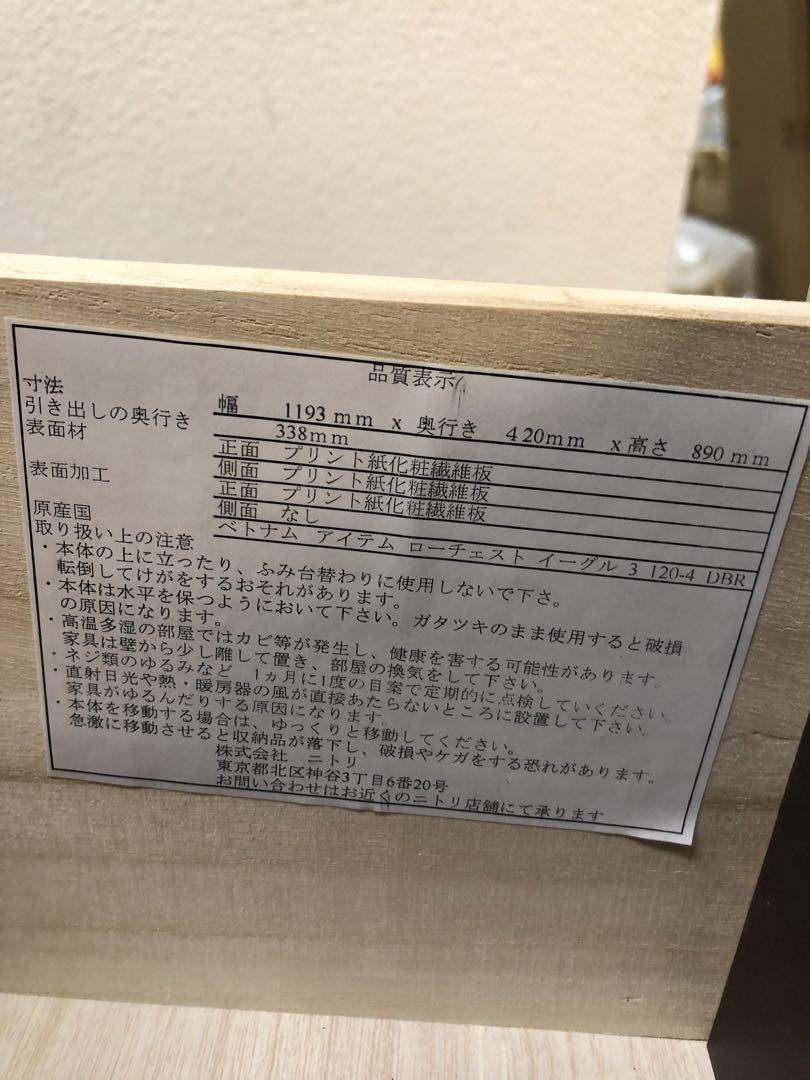 品質表示
寸法 幅 1193mm x 奥行き 420mm x高さ 890mm
引き出しの奥行き 338mm
表面材 正面 プリント紙化粧繊維板
側面 プリント紙化粧繊維板
表面加工 正面 プリント紙化粧繊維板
側面 なし
原産国 ベトナム アイテム ローチェスト イーグル 3 120-4 DBR
取り扱い上の注意
・本体の上に立ったり、ふみ台替わりに使用しないで下さ。
転倒してけがをするおそれがあります。
・本体は水平を保つようにおいて下さい。ガタツキのまま使用すると破損
の原因になります。
・高温多湿の部屋ではカビ等が発生し、健康を害する可能性があります。
家具は壁から少し離して置き、部屋の換気をして下さい。
・ネジ類のゆるみなど 1ヵ月に1度の目案で定期的に点検していください。
・直射日光や熱・暖房器の風が直接あたらないところに設置して下さい。
家具がゆるんだりする原因になります。
・本体を移動する場合は、ゆっくりと移動してください。
急激に移動させると収納品が落下し、破損やケガをする恐れがあります。
株式会社 ニトリ
東京都北区神谷3丁目6番20号
お問い合わせはお近くのニトリ店舗にて承ります